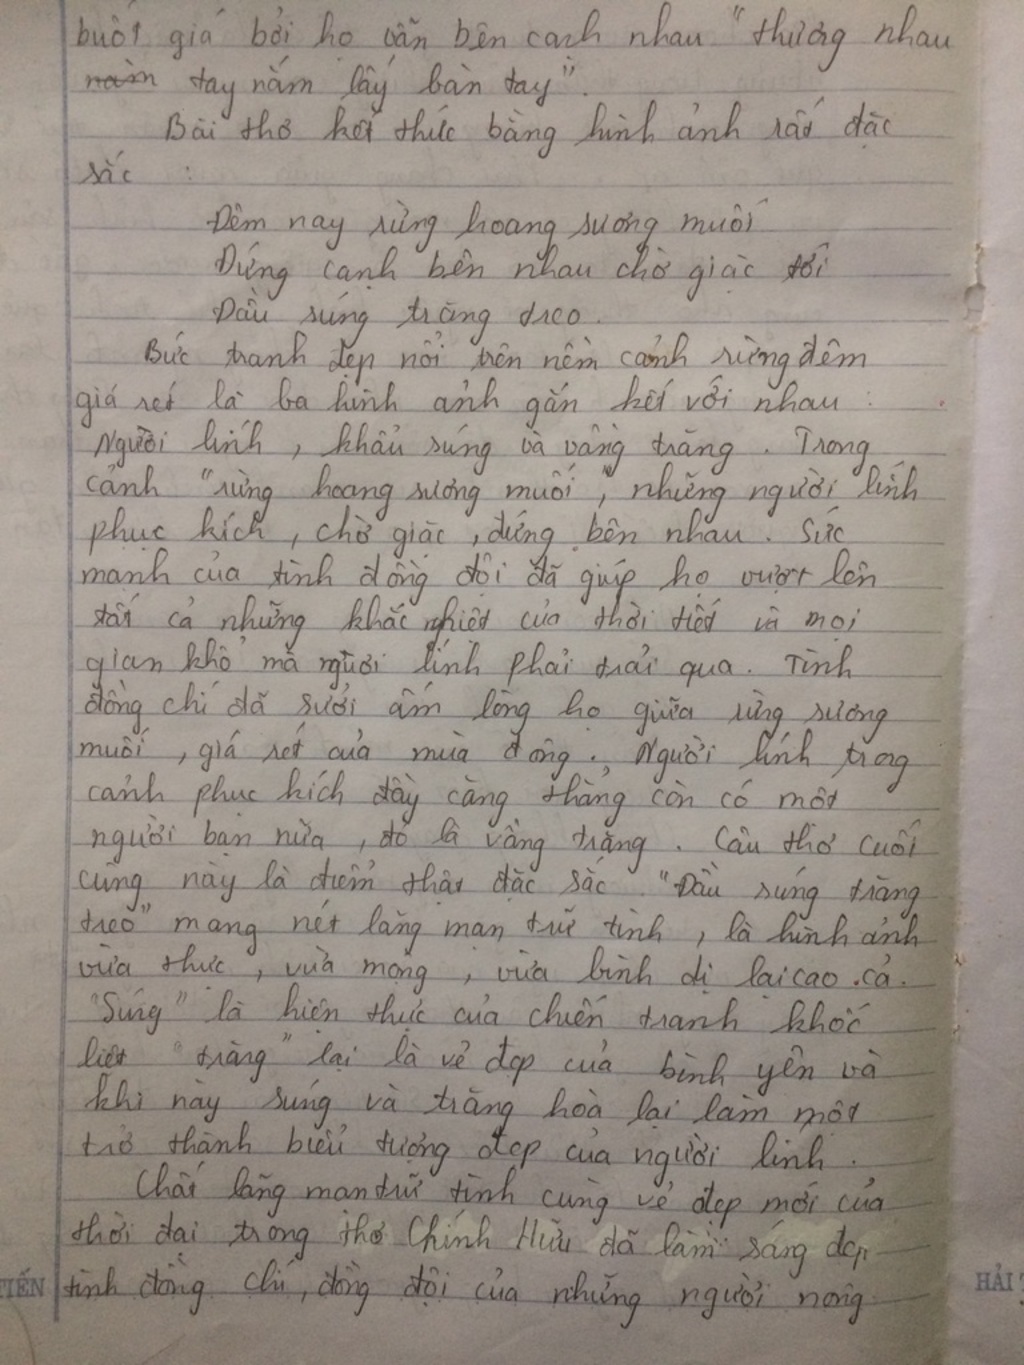 buốt giá bởi họ vẫn bên cạnh nhau "thương nhau
nắm tay nắm lấy bàn tay".
Bài thơ kết thúc bằng hình ảnh rất đặc
sắc :
Đêm nay rừng hoang sương muối
Đứng cạnh bên nhau chờ giặc tới
Đầu súng trăng treo.
Bức tranh đẹp nổi trên nền cảnh rừng đêm
giá rét là ba hình ảnh gắn kết với nhau :
Người lính, khẩu súng và vầng trăng. Trong
cảnh "rừng hoang sương muối", những người lính
phục kích, chờ giặc, đứng bên nhau. Sức
mạnh của tình đồng đội đã giúp họ vượt lên
tất cả những khắc nghiệt của thời tiết và mọi
gian khổ mà người lính phải trải qua. Tình
đồng chí đã sưởi ấm lòng họ giữa rừng sương
muối, giá rét của mùa đông. Người lính trong
cảnh phục kích đầy căng thẳng còn có một
người bạn nữa, đó là vầng trăng. Câu thơ cuối
cùng này là điểm thật đặc sắc. "Đầu súng trăng
treo" mang nét lãng mạn trữ tình, là hình ảnh
vừa thực, vừa mộng, vừa bình dị lại cao cả.
"Súng" là hiện thực của chiến tranh khốc
liệt "trăng" lại là vẻ đẹp của bình yên và
khi này súng và trăng hoà lại làm một
trở thành biểu tượng đẹp của người lính.
Chất lãng mạn trữ tình cùng vẻ đẹp mới của
thời đại trong thơ Chính Hữu đã làm sáng đẹp
tình đồng chí, đồng đội của những người nông
TIẾN
HẢI